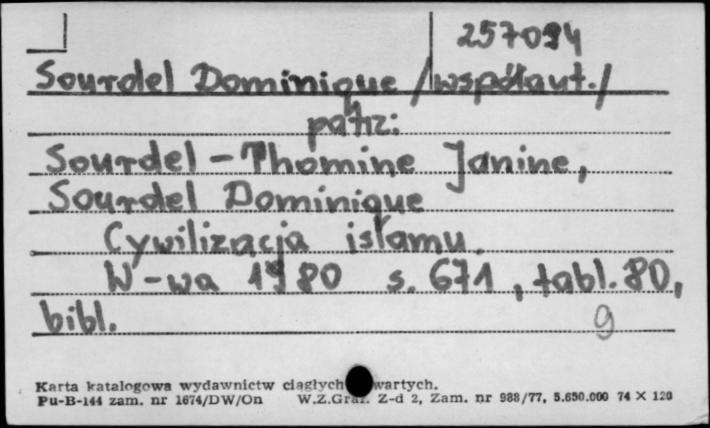 257094
Sourdel Dominique /współaut./
patrz:
Sourdel-Thomine Janine,
Sourdel Dominique
Cywilizacja islamu.
W-wa 1980 s. 671, tabl. 80,
bibl.
9
Karta katalogowa wydawnictw ciągłych wartych.
Pu-B-144 zam. nr 1674/DW/On W.Z.Graf. Z-d 2, Zam. nr 988/77, 5.650.000 74 X 120